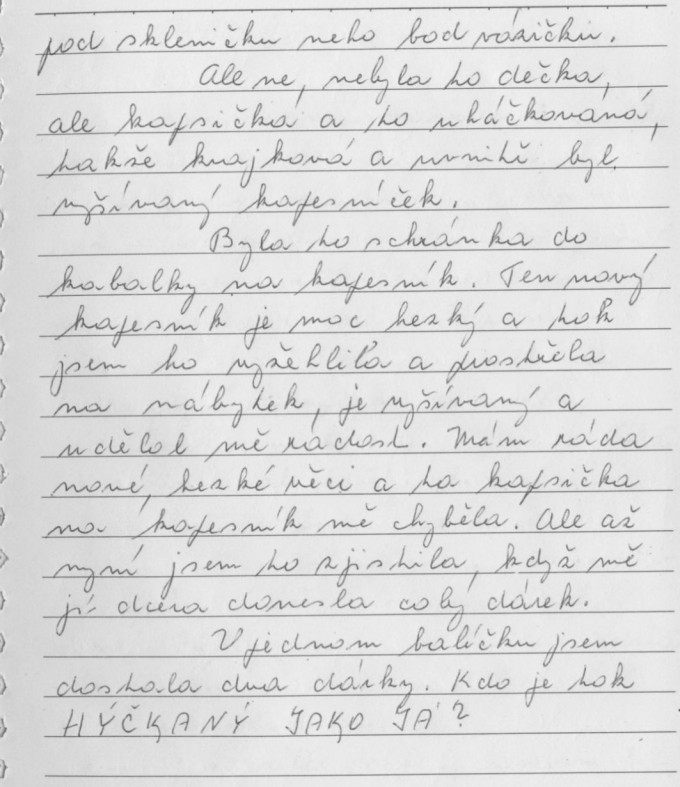 pod skleničku nebo pod vázičku.
Ale ne, nebyla to dečka,
ale kapsička a to uháčkovaná,
takže krajková a uvnitř byl
vyšívaný kapesníček.
Byla to schránka do
kabalky na kapesník. Ten nový
kapesník je moc hezký a tak
jsem ho vyžehlila a prostřela
na nábytek, je vyšívaný a
udělal mě radost. Mám ráda
nové, hezké věci a ta kapsička
na kapesník mě chyběla. Ale až
nyní jsem to zjistila, když mě
jí dcera donesla coby dárek.
V jednom balíčku jsem
dostala dva dárky. Kdo je tak
HÝČKANÝ JAKO JÁ?